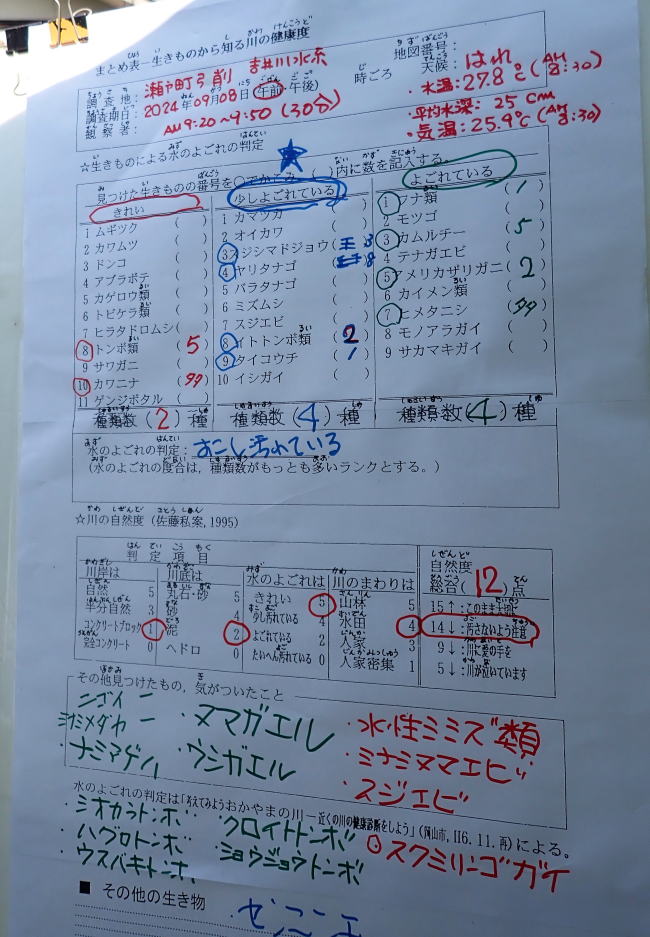 まとめ表－生きものから知る川の健康度
調査地：瀬戸町弓削 吉井川水系 地図番号：
調査期日：2024年09月08日（午前・午後） 時ごろ 天候：はれ
観察者： AM9:20～9:50（30分）
・水温：27.8℃（AM8:30）
・平均水深：25cm
・気温：25.9℃（AM8:30）
☆生きものによる水のよごれの判定
見つけた生きものの番号を○でかこみ、（ ）内に数を記入する。
きれい
1 ムギツク （ ）
2 カワムツ （ ）
3 ドンコ （ ）
4 アブラボテ （ ）
5 カゲロウ類 （ ）
6 トビケラ類 （ ）
7 ヒラタドロムシ（ ）
8 トンボ類 （5）
9 サワガニ （ ）
10 カワニナ （99）
11 ゲンジボタル （ ）
種類数（2）種
少しよごれている
1 カマツカ （ ）
2 オイカワ （ ）
3 スジシマドジョウ（ 3
4 ヤリタナゴ （ 8
5 バラタナゴ （ ）
6 ミズムシ （ ）
7 スジエビ （ ）
8 イトトンボ類（2）
9 タイコウチ （1）
10 イシガイ （ ）
種類数（4）種
よごれている
1 フナ類 （1）
2 モツゴ （ ）
3 カムルチー （5）
4 テナガエビ （ ）
5 アメリカザリガニ（2）
6 カイメン類 （ ）
7 ヒメタニシ （99）
8 モノアラガイ （ ）
9 サカマキガイ （ ）
種類数（4）種
水のよごれの判定：すこし汚れている
（水のよごれの度合は，種類数がもっとも多いランクとする。）
☆川の自然度（佐藤私案,1995）
判定項目
川岸は
自然 5
半分自然 3
コンクリートブロック 1
完全コンクリート 0
川底は
丸石・砂 5
砂 4
泥 2
ヘドロ 0
水のよごれは
きれい 5
少し汚れている 4
よごれている 2
たいへん汚れている 0
川のまわりは
山林 5
水田 4
人家 3
人家密集 1
自然度
総合（12）点
15↑：このまま大切に
14↓：汚さないよう注意
9↓：川に愛の手を
5↓：川が泣いています
その他見つけたもの，気がついたこと
・ヌマガエル
・ウシガエル
・水性ミミズ類
・ミナミヌマエビ
・スジエビ
水のよごれの判定は「考えてみようおかやまの川－近くの川の健康診断をしよう」（岡山市,H6.11.再）による。
・ハグロトンボ
・ウスバキトンボ
・クロイトトンボ
・ショウジョウトンボ
・スクミリンゴガイ
■ その他の生き物